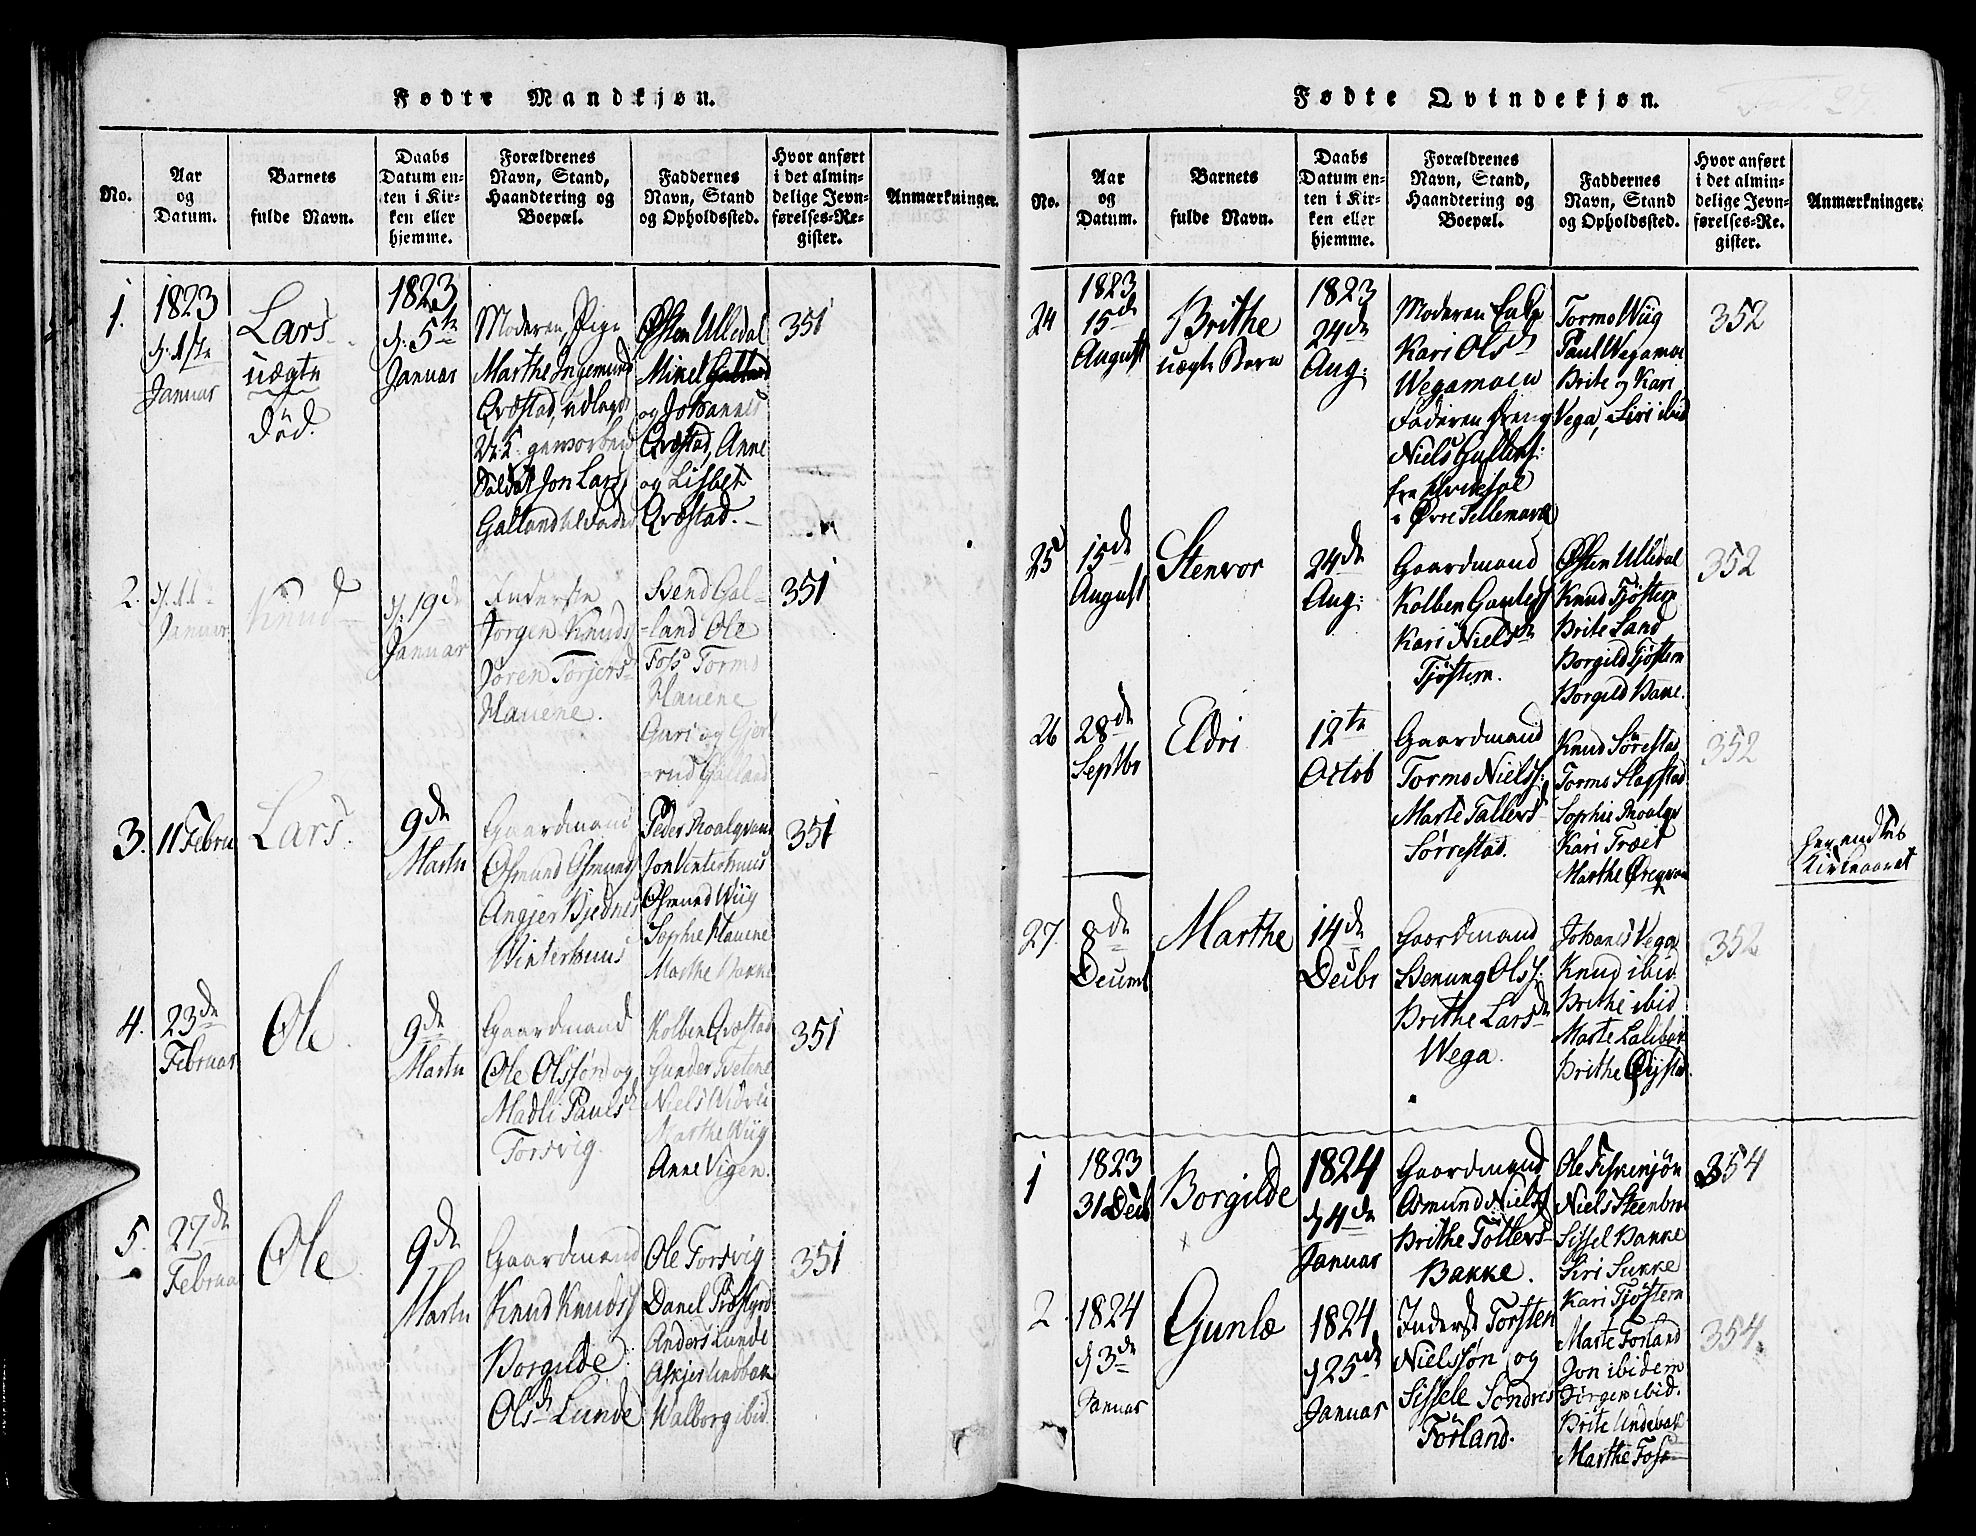 Fødte Mandkjøn.
No.
Aar
og
Datum.
Barnets
fulde Navn.
Daabs
Datum en-
ten i Kir-
ken eller
hjemme.
Forældrenes
Navn, Stand,
Haandtering og
Boepæl.
Faddernes
Navn, Stand
og Opholdssted.
Hvor anført
i det almin-
delige Jevn-
førelses-Re-
gister.
Anmærkninger.
1.
1823
d. 1ste
Januar
Lars
uægte
død.
1823
d. 5te
Januar
Moderen, Pige
Marthe Ingemund
Qvæstad, udlagde
gevorben
Soldat Jon Lars
Galland til Fader
Østen Ulledal
Mikel Galland
og Johannes
Qvæstad, Anne
og Lisbet
Qvæstad.
351
2.
d. 11
Januar
Knud
d. 19de
Januar
Inderste
Jørgen Knuds
Jøren Torjers
Hauene.
Svend Gal-
-land Ole
Foss Tormo
Hauene
Guri og Gjer
-rud Galland
351
3.
11 Febru
Lars.
9de
Marts
Gaardmand
Osmund Osmunds
Angjer Kjednes
Vinterhuus
Peder Roalqvam
Jon Vinterhuus
Osmund Wiig
Sophie Hauene
Marthe Bakke
351
4.
23de
Februar
Ole
9de
Marts
Gaardmand
Ole Olssøn og
Madli Pauls
Forsvig
Kolben Qvæstad
Gunder Tvetene
Niels Widvei
Marthe Wiig
Anne Vigen.
351
5.
27de
Februar
Ole
9de
Marts
Gaardmand
Knud Knuds
Borgilde
Olsd Lunde
Ole Forsvig
Danel Præstgrd
Anders Lunde
Askjer Lindbak
Walborg ibid.
351
Fødte Qvindekjøn.
No.
Aar
og
Datum.
Barnets
fulde Navn.
Daabs
Datum en-
ten i Kir-
ken eller
hjemme.
Forældrenes
Navn, Stand,
Haandtering og
Boepæl.
Faddernes
Navn, Stand
og Opholdssted.
Hvor anført
i det almin-
delige Jevn-
førelses-Re-
gister.
Anmærkninger.
24
1823
15de
August
Brithe
uægte Barn
1823
24de
Aug:
Moderen
Kari Olsd
Wegamoen
Faderen Dreng
Niels Gullers:
fra Hvideseæ
i Øvre Tellemark
Tormo Wiig
Paul Wegamoe
Brite og Kari
Vega, Siri ibid
352
25
15de
August
Stenvor
24de
Aug:
Gaardmand
Kolben Gautess
Kari Nielsd
Tjøstem.
Østen Ulledal
Knud Tjøstem
Brite Sand
Borgild Tjøstem
Borgild Bakke.
352
26
28de
Septbr
Eldri
12te
Octob
Gaardmand
Tormo Nielss:
Marte Tallers
Sørrestad.
Knud Sørestad
Tormo Slapstad
Sophie Roalqv
Kari Træet
Marthe
352
her endtes
Kirkeaaret
27.
8de
Decemb
Marthe
14de
Decbr
Gaardmand
Benung Olss:
Brithe Larsd
Wega.
Johanes Vega
Knud ibid
Brithe ibid
Marte
Brithe
352
1
1823
31 Decb
Borgilde
1824
d 4de
Januar
Gaardmand
Osmund Nielss
Brithe Tollers
Bakke.
Ole Fiskensjøn
Niels Steenbro
Sissel Bakke
Siri Sukke
Kari Tjøstem
354
2.
1824
d 3de
Januar
Gunlæ
1824
d 25de
Januar
Inderst Torsten
Nielssøn og
Sissele Sondres
Førland.
Marte Førland
Jon ibidem
Jørgen ibid.
Brite Lindebak
Marthe Foss
354